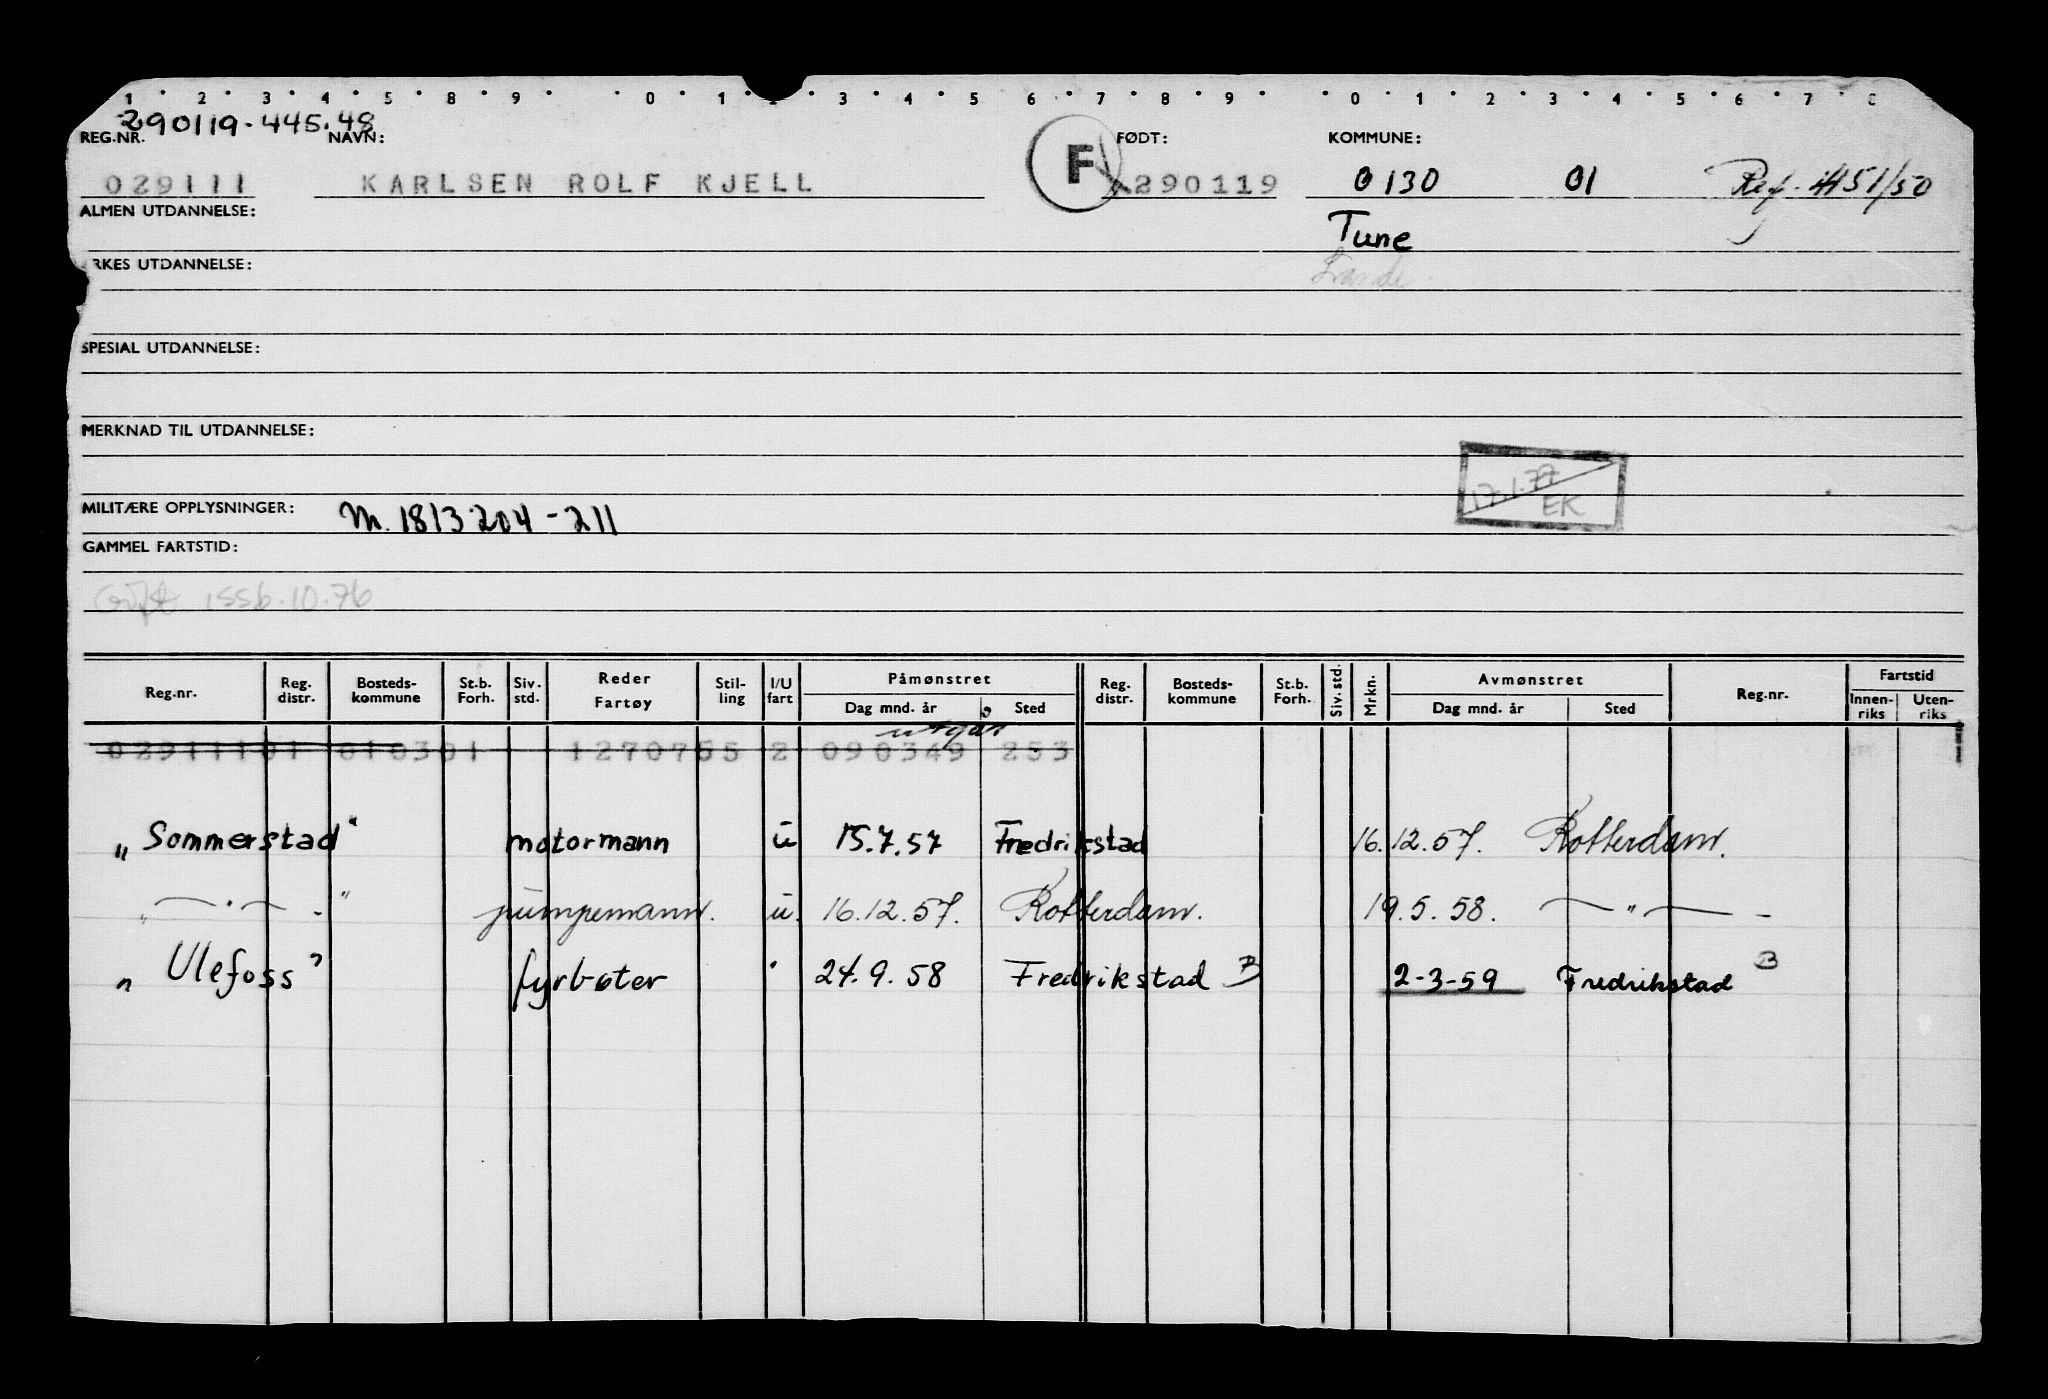 1 · 2 · 3 · 4 · 5 · 8 · 9 · 0 · 1 · 3 · 4 · 5 6 · 7 · 8 · 9 · · 0 · 1 · 2 · 3 · 4 · 5 · 6 · 7 ·
290119.445.48
REG.NR. NAVN: FØDT: KOMMUNE:
029111 KARLSEN ROLF KJELL F 290119 0130 01 Ref. 4451/50
ALMEN UTDANNELSE: Tune
RKES UTDANNELSE:
SPESIAL UTDANNELSE:
MERKNAD TIL UTDANNELSE:
17.1.77
EK
MILITÆRE OPPLYSNINGER: M. 1813204-211
GAMMEL FARTSTID:
1556.10.76
Reg.nr. Reg. distr. Bosteds- kommune St.b. Forh. Siv. std. Reder Fartøy Stil- ling I/U fart Påmønstret Reg. distr. Bosteds- kommune St.b. Forh. Siv. std. Mrkn. Avmønstret Reg.nr. Fartstid
Dag mnd. år Sted Dag mnd. år Sted Innen- riks Uten- riks
utgår
02911101 010301 1270755 2 090349 253
„Sommerstad" motormann u 15.7.57 Fredrikstad 16.12.57. Rotterdam.
„ — " — " pumpemann. u. 16.12.57. Rotterdam. 19.5.58. — " —
„Ulefoss" fyrbøter " 24.9.58 Fredrikstad B 2-3-59 Fredrikstad B